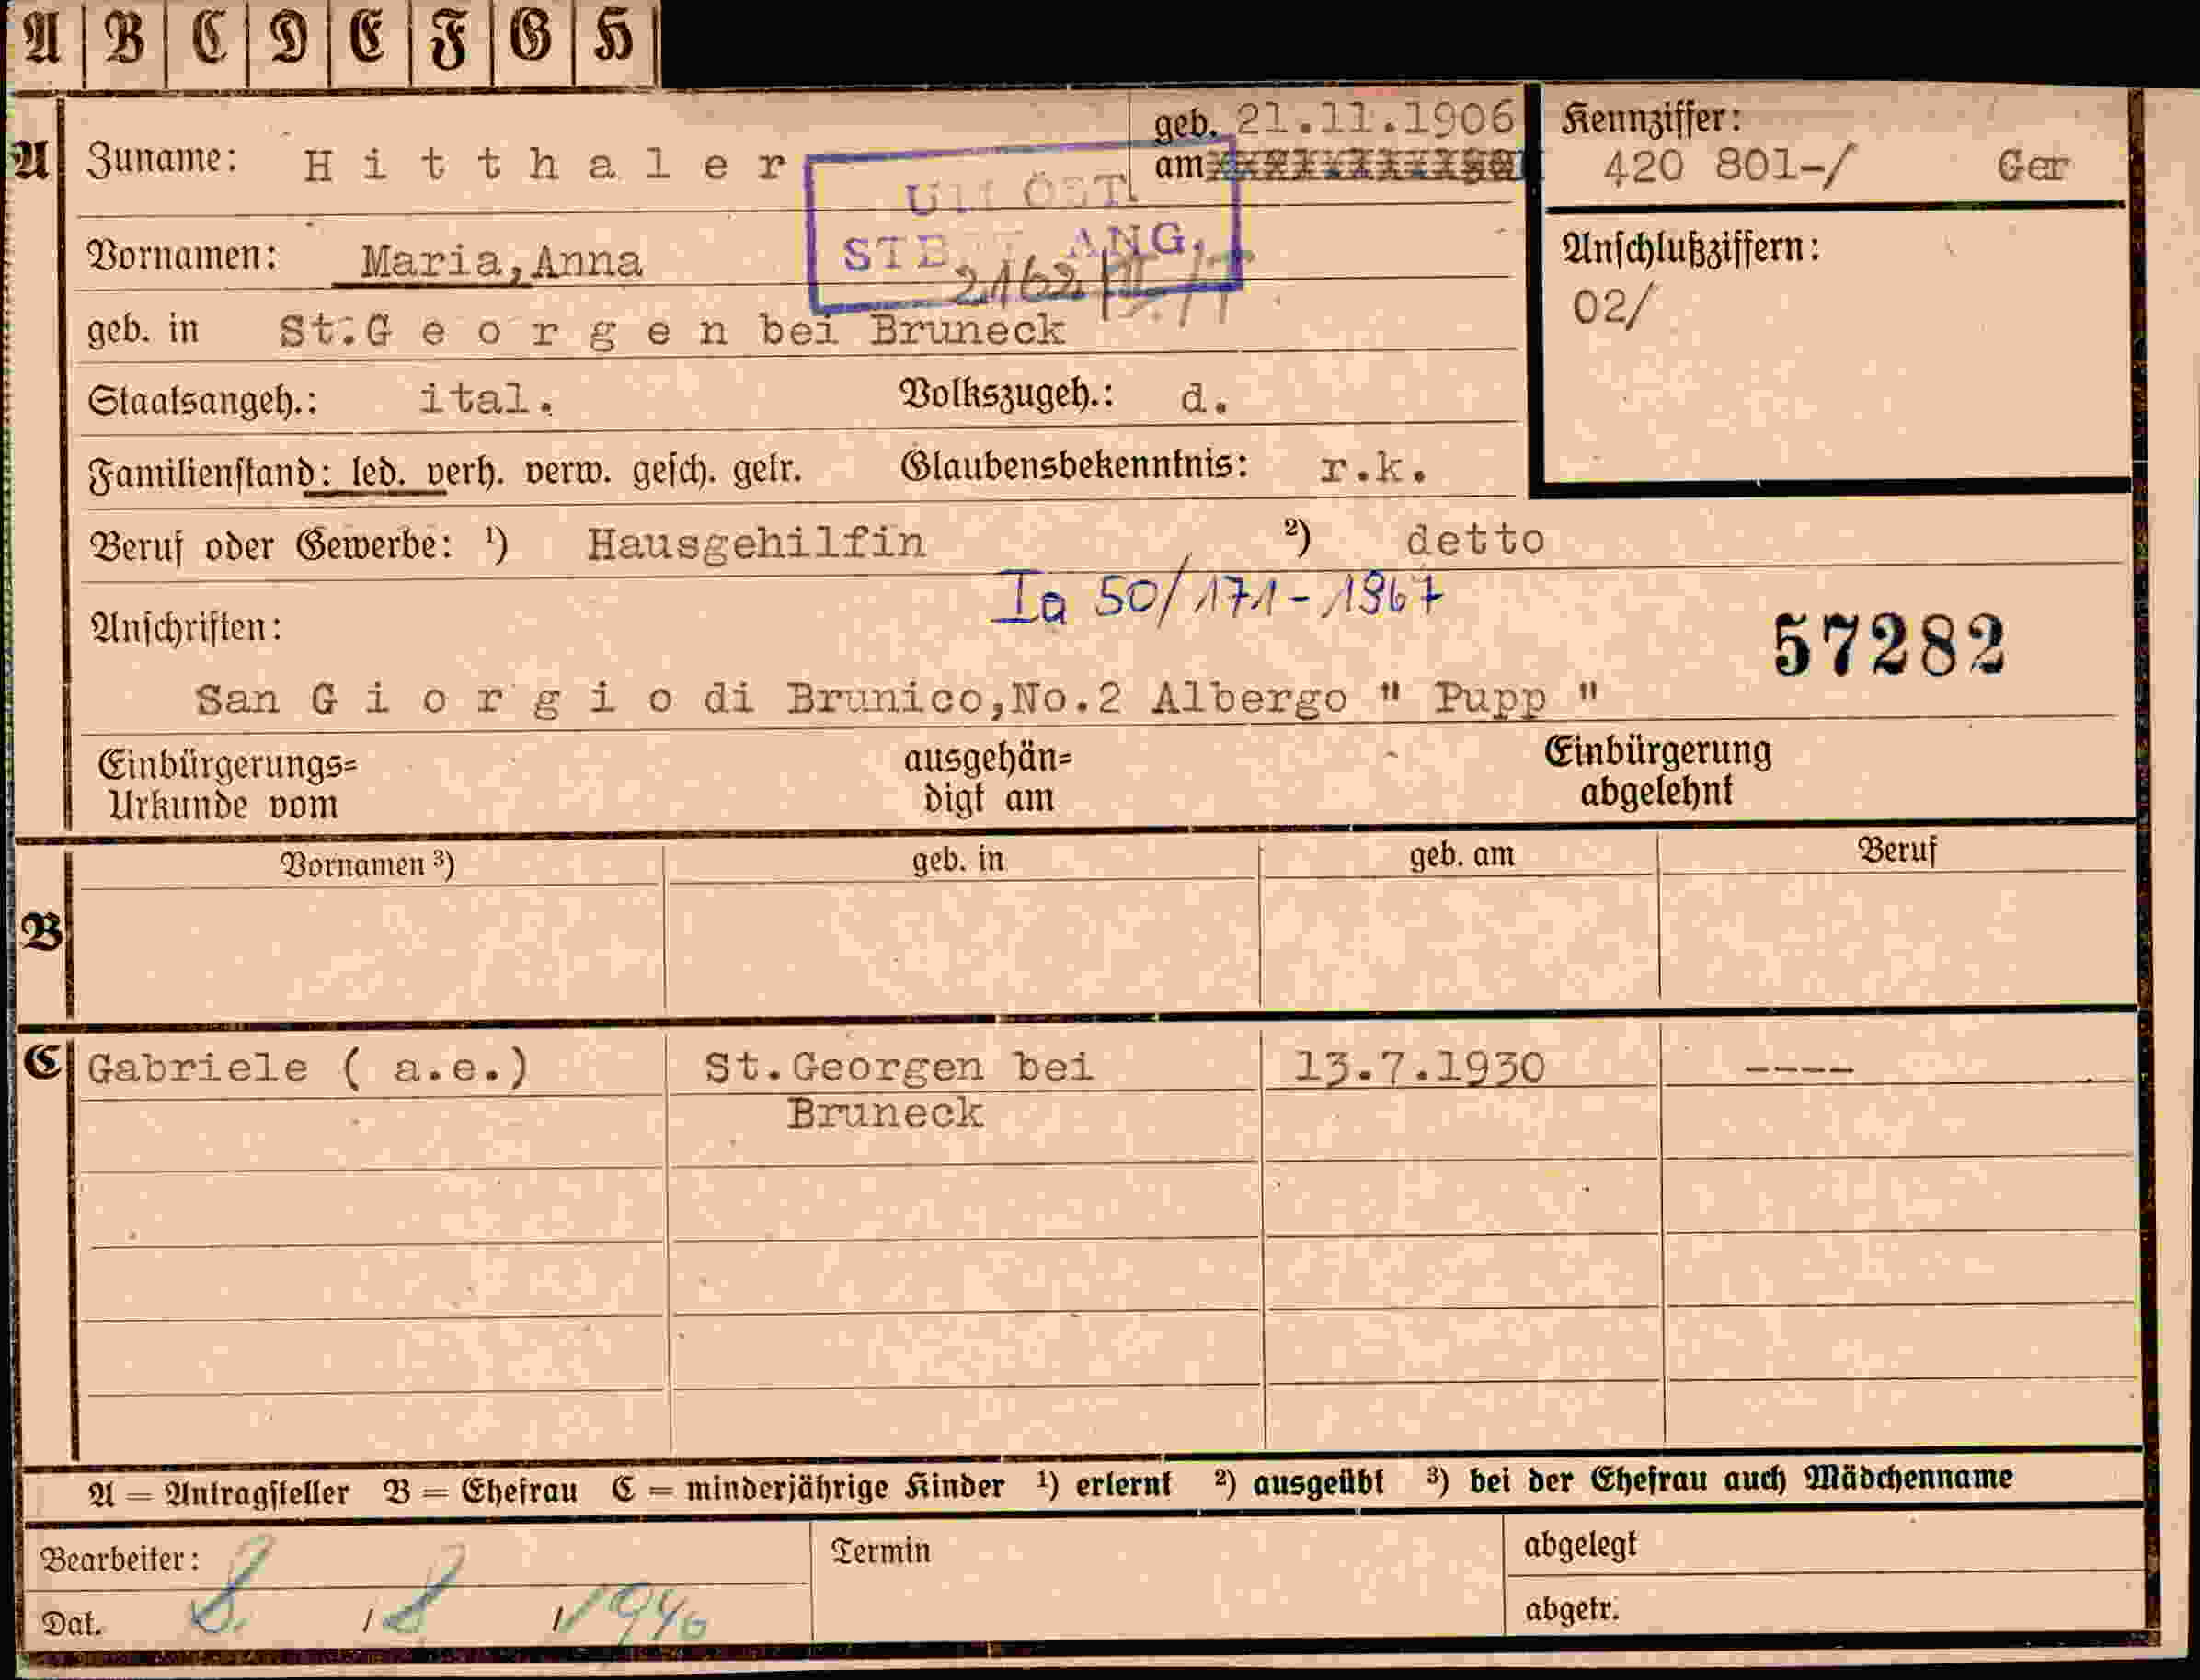 A B C D E F G H
A Zuname: Hitthaler geb. am 21.11.1906 Kennziffer:
420 801-/ Ger
UM ÖST.
ANG.
Vornamen: Maria, Anna Anschlußziffern:
02/
geb. in St. Georgen bei Bruneck
Staatsangeh.: ital. Volkszugeh.: d.
Familienstand: led. verh. verw. gesch. getr. Glaubensbekenntnis: r.k.
Beruf oder Gewerbe: 1) Hausgehilfin 2) detto
Ia 50/171-1967
Anschriften: 57282
San Giorgio di Brunico, No.2 Albergo " Pupp "
Einbürgerungs= ausgehän= Einbürgerung
Urkunde vom digt am abgelehnt
Vornamen 3) geb. in geb. am Beruf
B
C Gabriele ( a.e.) St.Georgen bei 13.7.1930 ----
Bruneck
A = Antragsteller B = Ehefrau C = minderjährige Kinder 1) erlernt 2) ausgeübt 3) bei der Ehefrau auch Mädchenname
Bearbeiter: Termin abgelegt
Dat. 8. / 8 / 1940 abgetr.